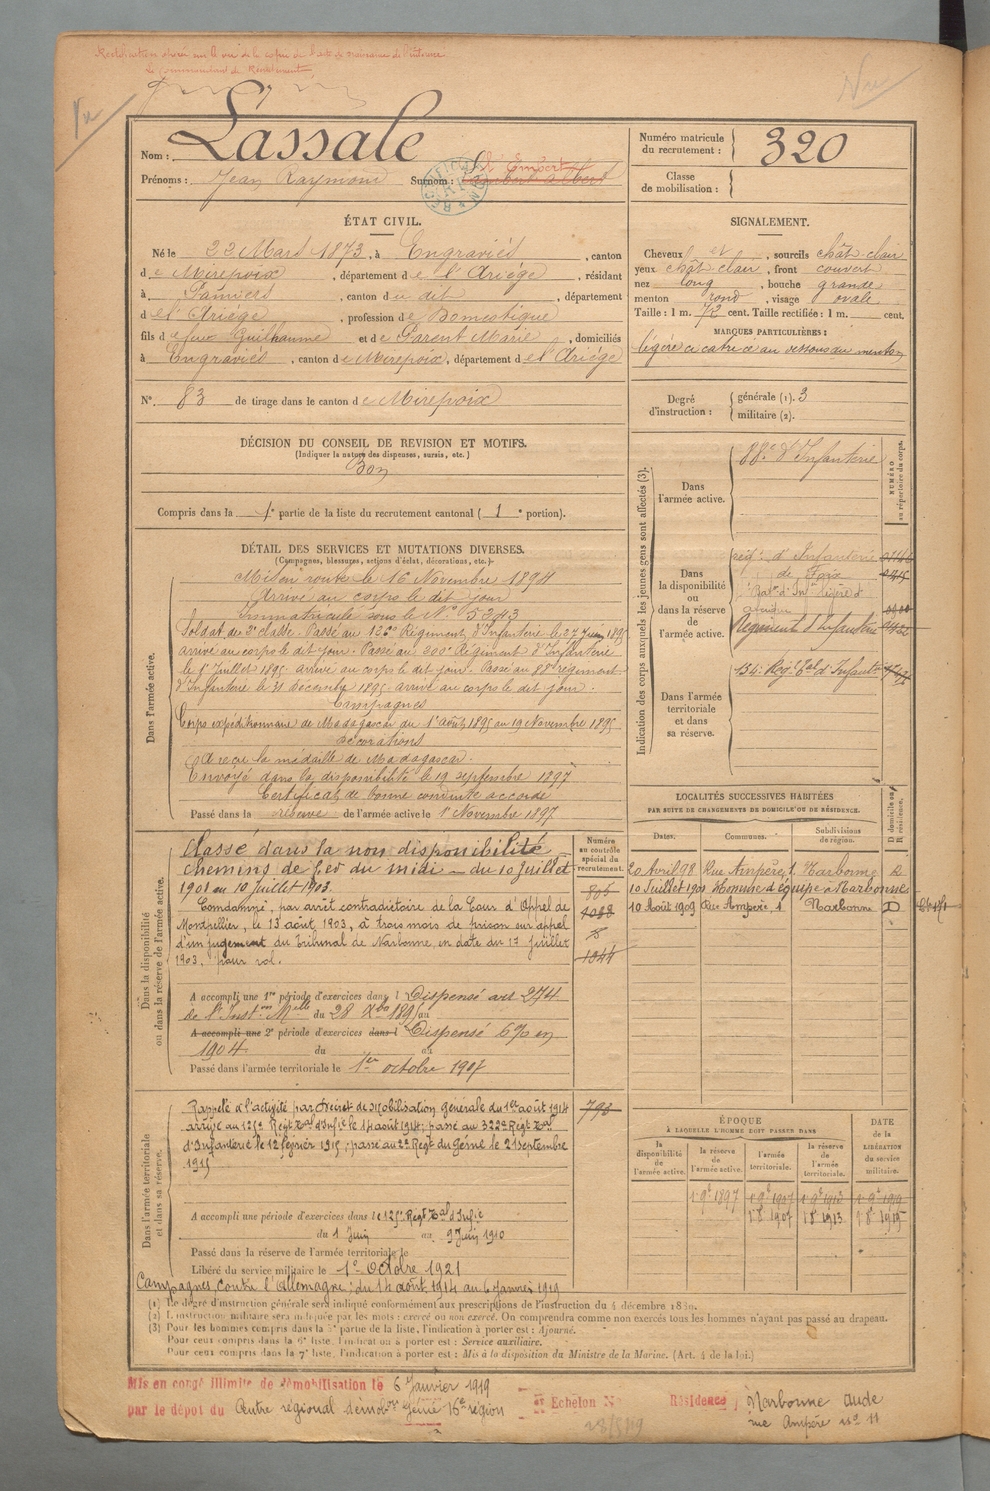 Rectification opérée sur le vu de la copie de l'acte de naissance de l'intéressé
Le Commandant de Recrutement
Vu
Nom : Lassale
Prénoms : Jean Raymond Surnom :
Numéro matricule du recrutement : 320
Classe de mobilisation :
ÉTAT CIVIL.
Né le 22 Mars 1873, à Engraviès, canton
de Mirepoix, département de l'Ariège, résidant
à Pamiers, canton du dit, département
de l'Ariège, profession de Domestique
fils de feu Guilhaume et de Parent Marie, domiciliés
à Engraviès, canton de Mirepoix, département de l'Ariège
N° 83 de tirage dans le canton de Mirepoix
SIGNALEMENT.
Cheveux et, sourcils chât-clair
yeux chât-clair, front couvert
nez long, bouche grande
menton rond, visage ovale.
Taille : 1 m. 72 cent. Taille rectifiée : 1 m. cent.
MARQUES PARTICULIÈRES :
légère cicatrice au dessous du menton
Degré d'instruction : générale (1). 3
militaire (2).
DÉCISION DU CONSEIL DE REVISION ET MOTIFS.
(Indiquer la nature des dispenses, sursis, etc.)
Bon
Compris dans la 1e partie de la liste du recrutement cantonal ( 1 e portion).
DÉTAIL DES SERVICES ET MUTATIONS DIVERSES.
(Campagnes, blessures, actions d'éclat, décorations, etc.)
Dans l'armée active.
Mis en route le 16 Novembre 1894
Arrivé au corps le dit jour
Immatriculé sous le N° 5243
Soldat de 2e classe. Passé au 126e Régiment d'Infanterie le 27 Juin 1895
arrivé au corps le dit jour. Passé au 200e Régiment d'Infanterie
le 1er Juillet 1895 arrivé au corps le dit jour. Passé au 88e régiment
d'Infanterie le 31 décembre 1895 arrivé au corps le dit jour.
Campagnes
Corps expéditionnaire de Madagascar du 1er août 1895 au 19 Novembre 1895
Décorations
A reçu la médaille de Madagascar.
Envoyé dans la disponibilité le 19 septembre 1897
Certificat de bonne conduite accordé
Passé dans la réserve de l'armée active le 1er Novembre 1897
Indication des corps auxquels les jeunes gens sont affectés (3).
NUMÉRO au répertoire du corps.
Dans l'armée active.
88e d'Infanterie
Dans la disponibilité ou dans la réserve de l'armée active.
régt d'Infanterie
de Foix
Batn d'Infie légère d'
afrique
Régiment d'Infanterie
Dans l'armée territoriale et dans sa réserve.
134e Régt Tal d'Infantie
LOCALITÉS SUCCESSIVES HABITÉES
PAR SUITE DE CHANGEMENTS DE DOMICILE OU DE RÉSIDENCE.
Dates. Communes. Subdivisions de région. D domicile ou R résidence.
20 Avril 98 Rue Ampère, 1. Narbonne R
10 Juillet 1901 Homme d'équipe à Narbonne
10 Août 1909 Rue Ampère, 1 Narbonne D
Dans la disponibilité ou dans la réserve de l'armée active.
Numéro au contrôle spécial du recrutement.
Classé dans la non disponibilité
chemins de fer du midi — du 10 Juillet
1901 au 10 Juillet 1903.
Condamné, par arrêt contradictoire de la Cour d'Appel de
Montpellier, le 13 août 1903, à trois mois de prison sur appel
d'un jugement du Tribunal de Narbonne, en date du 17 Juillet
1903. pour vol.
1088
1044
A accompli une 1re période d'exercices dans l Dispensé art 274
de l'Inston Mlle du 28 Xbre 1895 au
A accompli une 2e période d'exercices dans l Dispensé 6% en
1904 du au
Passé dans l'armée territoriale le 1er octobre 1907
Dans l'armée territoriale et dans sa réserve.
Rappelé à l'activité par Décret de Mobilisation Générale du 1er août 1914
arrivé au 125e Régt Tal d'Infie le 14 août 1914 ; passé au 322e Régt Tal
d'Infanterie le 12 février 1915 ; passé au 2e Régt du Génie le 21 septembre
1915
798
A accompli une période d'exercices dans le 125e Régt Tal d'Infie
du 1 Juin au 9 Juin 1910
Passé dans la réserve de l'armée territoriale le
Libéré du service militaire le 1er Octobre 1921
Campagnes, contre l'Allemagne : du 14 août 1914 au 6 Janvier 1919
ÉPOQUE
À LAQUELLE L'HOMME DOIT PASSER DANS
la disponibilité de l'armée active. la réserve de l'armée active. l'armée territoriale. la réserve de l'armée territoriale. DATE de la LIBÉRATION du service militaire.
1er 9e 1897 1er 9e 1907 1er 9e 1913 1er 9e 1919
1er 8e 1907 1er 8e 1913 1er 8e 1919
(1) Le degré d'instruction générale sera indiqué conformément aux prescriptions de l'instruction du 4 décembre 1889.
(2) L'instruction militaire sera indiquée par les mots : exercé ou non exercé. On comprendra comme non exercés tous les hommes n'ayant pas passé au drapeau.
(3) Pour les hommes compris dans la 5e partie de la liste, l'indication à porter est : Ajourné.
Pour ceux compris dans la 6e liste, l'indication à porter est : Service auxiliaire.
Pour ceux compris dans la 7e liste, l'indication à porter est : Mis à la disposition du Ministre de la Marine. (Art. 4 de la loi.)
Mis en congé illimité de démobilisation le 6 Janvier 1919
par le dépôt du Centre régional démobon Génie 16e région
Echelon N°
Résidence : Narbonne Aude
rue Ampère n° 11